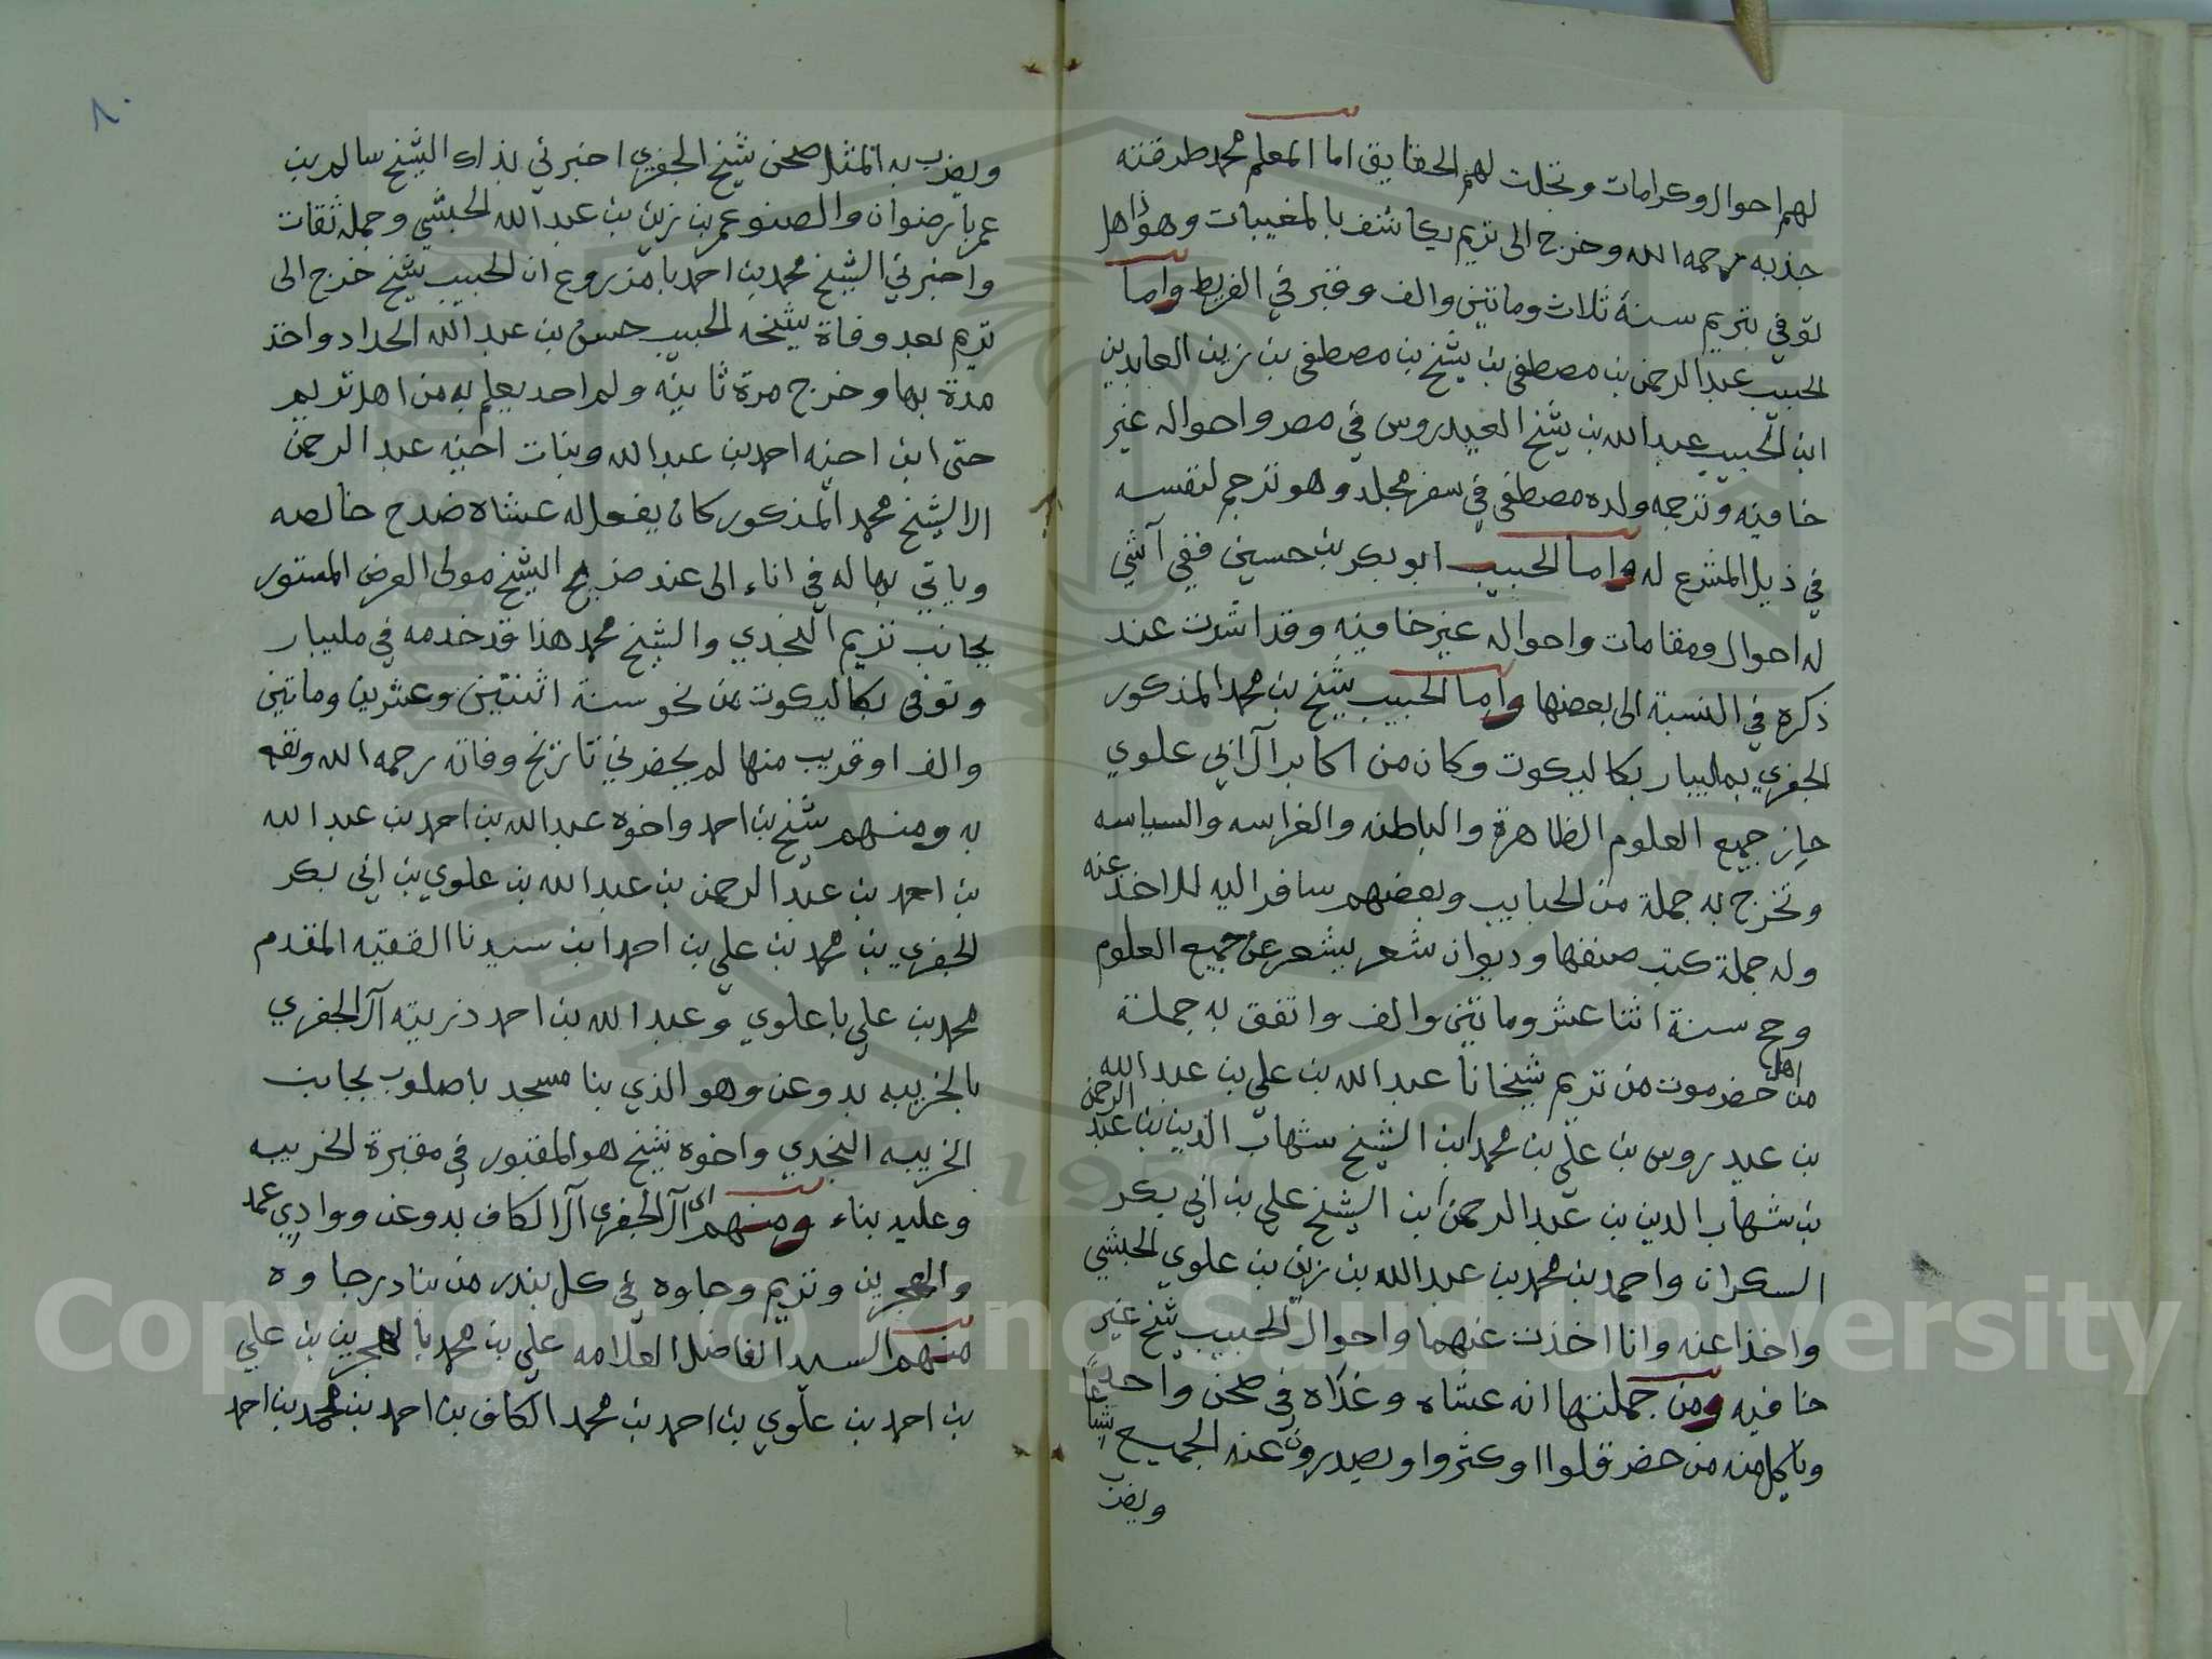 لهم احوال وكرامات وتجلت لهم الحقايق اما المعلم محمد طرقته
جذبه رحمه الله وخرج الى تريم يكاشف بالمغيبات وهو اذا هل
توفي بتريم سنة ثلاث وماتين والف وقبر في الفريط واما
الحبيب عبدالرحمن بن مصطفى بن شيخ بن مصطفى بن زين العابدين
ابن الحبيب عبدالله بن شيخ العيدروس في مصر واحواله غير
خافيه وترجمه ولده مصطفى في سفر مجلد وهو ترجم لنفسه
في ذيل المشرع له واما الحبيب ابوبكر بن حسين ففي آشي
له احوال ومقامات واحواله غير خافيه وقد اشرت عند
ذكره في النسبة الى بعضها واما الحبيب شيخ بن محمد المذكور
الجفري بمليبار بكاليكوت وكان من اكابر آل ابي علوي
حاز جميع العلوم الظاهرة والباطنه والفراسه والسياسه
وتخرج به جملة من الحبايب وبعضهم سافر اليه للاخذ عنه
وله جملة كتب صنفها وديوان شعر يشعر عن جميع العلوم
وحج سنة اثنا عشر وماتين والف واتفق به جملة
من اهل حضرموت من تريم شيخانا عبدالله بن علي بن عبدالله
بن عيدروس بن علي بن محمد ابن الشيخ شهاب الدين بن عبد الرحمن
بن شهاب الدين بن عبدالرحمن ابن الشيخ علي بن ابي بكر
السكران واحمد بن محمد بن عبدالله بن زين بن علوي الحبشي
واخذا عنه وانا اخذت عنهما واحوال الحبيب شيخ غير
خافيه ومن جملتها انه عشاه وغداه في صحن واحد
وياكل منه من حضر قلوا او كثروا ويصدرون عنه الجميع شباعاً
ويضرب
٨٠
ويضرب به المثل صحن شيخ الجفري اخبرني بذاك الشيخ سالم بن
عمر بارضوان والصنو عمر بن زين بن عبدالله الحبشي وجمله ثقات
واخبرني الشيخ محمد بن احمد بامزروع ان الحبيب شيخ خرج الى
تريم بعد وفاة شيخه الحبيب حسن بن عبدالله الحداد واخذ
مدة بها وخرج مرة ثانيه ولم احد يعلم به من اهل تريم
حتى ابن اخيه احمد بن عبدالله وبنات اخيه عبدالرحمن
الا الشيخ محمد المذكور كان يفعل له عشاه ضدح خالصه
وياتي بها له في اناء الى عند ضريح الشيخ مولى العرض المستور
بجانب تريم النجدي والشيخ محمد هذا قد خدمه في مليبار
وتوفى بكاليكوت من نحو سنة اثنتين وعشرين وماتين
والف او قريب منها لم يحضرني تاريخ وفاته رحمه الله ونفع
به ومنهم شيخ بن احمد واخوه عبدالله بن احمد بن عبدالله
بن احمد بن عبدالرحمن بن عبدالله بن علوي بن ابي بكر
الجفري بن محمد بن علي بن احمد ابن سيدنا الفقيه المقدم
محمد بن علي باعلوي وعبدالله بن احمد ذريته آل الجفري
بالخريبه بدوعن وهو الذي بنا مسجد باصلوب بجانب
الخريبه النجدي واخوه شيخ هو المقبور في مقبرة الخريبه
وعليه بناء ومنهم اي آل الجفري آل الكاف بدوعن ووادي عمد
والهجرين وتريم وجاوه في كل بندر من بنادر جاوه
منهم السيد الفاضل العلامه علي بن محمد بالهجرين بن علي
بن احمد بن علوي بن احمد بن محمد الكاف بن احمد بن محمد بن احمد
Copyright © King Saud University
1957